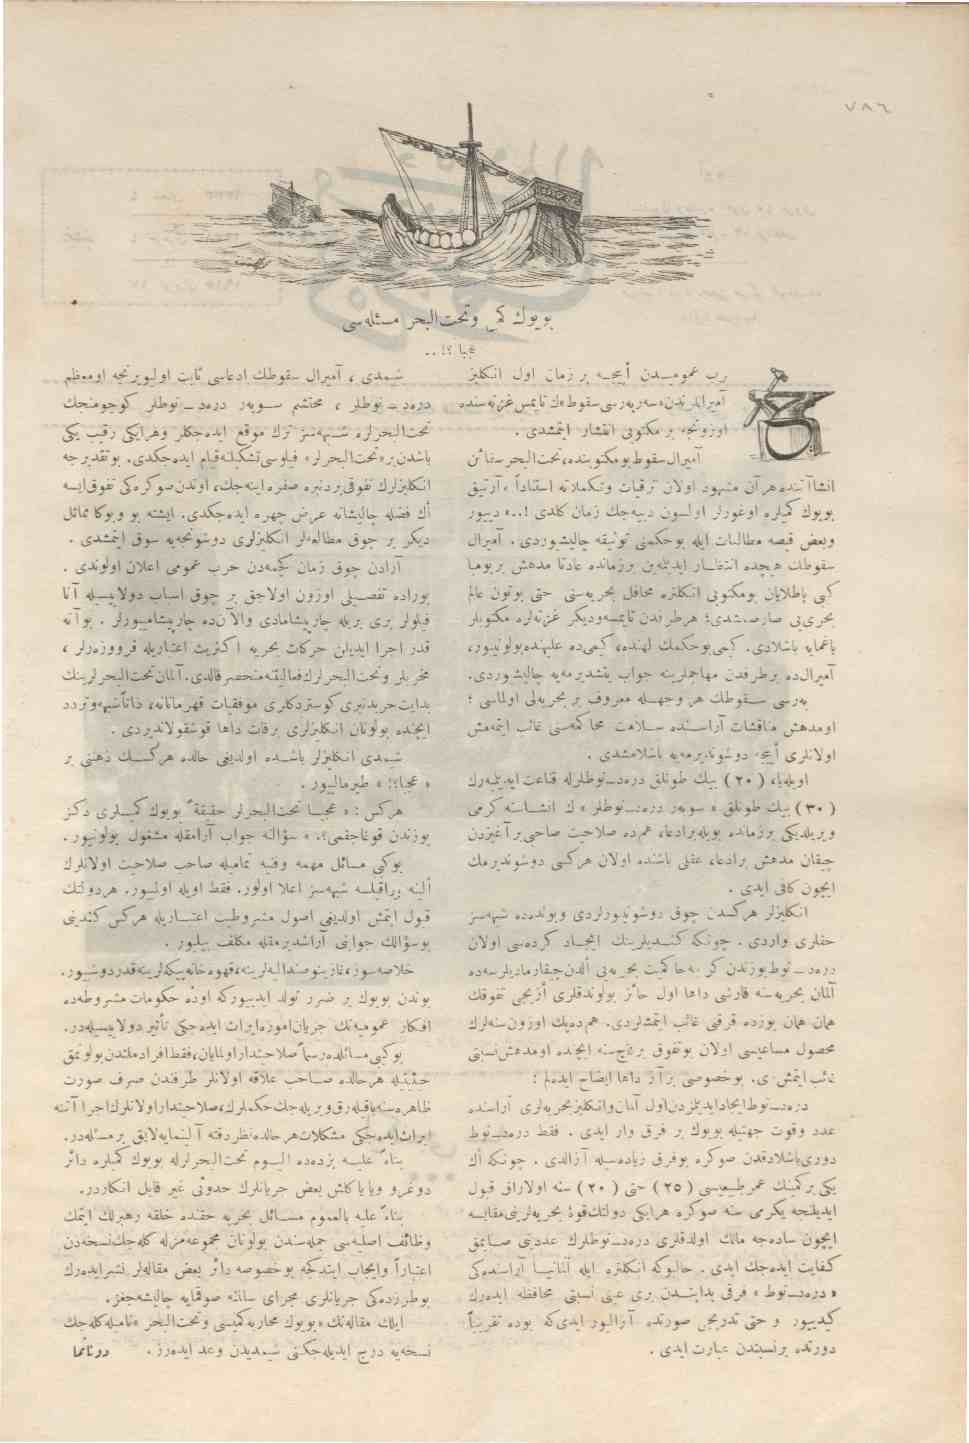 ٧٨٦
بویوك كمی وتحت‌البحر مسئله‌سی
عجبا ؟!..
حرب عمومیدن أییجه بر زمان اول انكلیز
آمیراللرندن «سه‌ر په‌رسی سقوط» ك تایمس غزته‌سنده
اوزونجه بر مكتوبی انتشار ایتمشدی .
آمیرال سقوط بو مكتوبنده، تحت‌البحر سفائن
انشاآتنده هر آن مشهود اولان ترقیات وتكملاته استناداً « آرتیق
بویوك كمیلره اوغورلر اولسون دییه‌جك زمان كلدی !.. » دییور
وبعض قیصه مطالعات ایله بو حكمنی توثیقه چالیشیوردی . آمیرال
سقوطك هیچده انتظار ایدیلمه‌ین بر زمانده عادتا مدهش بر بومبا
كبی پاطلایان بو مكتوبی انكلتره محافل بحریه‌سنی حتی بوتون عالم
بحری‌یی صارصمشدی؛ هر طرفدن تایمسه ودیكر غزته‌لره مكتوبلر
یاغمایه باشلادی. كیمی بو حكمك لهنده، كیمی ده علیهنده بولونیور،
آمیرال ده بر طرفدن مهاجملرینه جواب یتشدیرمه‌یه چالیشیوردی.
په‌رسی سقوطك هر وجهله معروف بر بحریه‌لی اولماسی ؛
او مدهش مناقشات آراسنده سلامت محاكمه‌سنی غائب ایتمه‌مش
اولانلری أییجه دوشوندیرمه‌یه باشلامشدی .
اویله یا، (٢٠) بیك طونلق دره‌دنوطلرله قناعت ایدیلمیه‌رك
(٣٠) بیك طونلق « سوپه‌ر دره‌دنوطلر » ك انشاسنه كرمی
ویریلدیكی بر زمانده بویله بر ادعا، هم ده صلاحیت صاحبی بر آغیزدن
چیقان مدهش بر ادعا، عقلی باشنده اولان هركسی دوشوندیرمك
ایچون كافی ایدی .
انكلیزلر هركسدن چوق دوشونیورلردی وبونده ده شبهه‌سز
حقلری واردی . چونكه كندیلرینك ایجاد كرده‌سی اولان
دره‌دنوط یوزندن كرچه حاكمیت بحریه‌یی ألدن چیقارمادیلرسه ده
آلمان بحریه‌سنه قارشی داها اول حائز بولوندقلری أزیجی تفوقك
همان همان یوزده قرقنی غائب ایتمشلردی. هم ده پك اوزون سنه‌لرك
محصول مساعیسی اولان بو تفوق بر قاچ سنه ایچنده او مدهش نسبتی
غائب ایتمشدی. بو خصوصی بر آز داها ایضاح ایده‌لم :
دره‌دنوط ایجاد ایدیلمزدن اول آلمان وانكلیز بحریه‌لری آراسنده
عدد وقوت جهتیله بویوك بر فرق وار ایدی . فقط دره‌دنوط
دوری باشلادقدن صوكره بو فرق زیاده‌سیله آزالدی . چونكه أك
یكی بر كمینك عمر طبیعیسی (٢٥) حتی (٢٠) سنه اولارق قبول
ایدیلنجه یكرمی سنه صوكره هر ایكی دولتك قوۀ بحریه‌لرینی مقایسه
ایچون ساده‌جه مالك اولدقلری دره‌دنوطلرك عددینی صایمق
كفایت ایده‌جك ایدی . حالبوكه انكلتره ایله آلمانیا آراسنده‌كی
« دره‌دنوط » فرقی بدایتدن بری عینی نسبتی محافظه ایده‌رك
كیدییور و حتی تدریجی صورتده آزالیور ایدی كه بوده تقریباً
دورتده بر نسبتدن عبارت ایدی .
شیمدی ، آمیرال سقوطك ادعاسی ثابت اولیویرنجه او معظم
دره‌دنوطلر ، محتشم سوپه‌ر دره‌دنوطلر كوچومنجك
تحت‌البحرلره شبهه‌سز ترك موقع ایده‌جكلر وهر ایكی رقیب یكی
باشدن بر «تحت‌البحرلر» فیلوسی تشكیلنه قیام ایده‌جكدی. بو تقدیرجه
انكلیزلرك تفوقی بردنبره صفره اینه‌جك، اوندن صوكره‌كی تفوق ایسه
أك فضله چالیشانه عرض چهره ایده‌جكدی. ایشته بو وبوكا مماثل
دیكر بر چوق مطالعه‌لر انكلیزلری دوشونجه‌یه سوق ایتمشدی .
آرادن چوق زمان كچمه‌دن حرب عمومی اعلان اولوندی .
بوراده تفصیلی اوزون اولاجق بر چوق اسباب دولاییسیله آنا
فیلولر بری بریله چارپیشامادی والآن ده چارپیشامیورلر . بو آنه
قدر اجرا ایدیلن حركات بحریه اكثریت اعتباریله قرووازورلر ،
مخربلر وتحت‌البحرلرك فعالیتنه منحصر قالدی. آلمان تحت‌البحرلرینك
بدایت حربدنبری كوستردكلری موفقیات قهرمانانه، ذاتاً شبهه وتردد
ایچنده بولونان انكلیزلری برقات داها قوشقولاندیردی .
شیمدی انكلیزلر باشده اولدیغی حالده هركسك ذهننی بر
« عجبا؟! » طیرمالییور .
هركس : « عجبا تحت‌البحرلر حقیقةً بویوك كمیلری دكز
یوزندن قوغاجقمی؟. » سؤالنه جواب آرامقله مشغول بولونیور.
بو كبی مسائل مهمه وفنیه تمامیله صاحب صلاحیت اولانلرك
ألینه بیراقیلسه شبهه‌سز اعلا اولور. فقط اویله اولمیور. هر دولتك
قبول ایتمش اولدیغی اصول مشروطیت اعتباریله هركس كندینی
بو سؤالك جوابنی آراشدیرمقله مكلف بیلیور .
خلاصه سوز، غازینو صندالیه‌لرینه، قهوه‌خانه پیكه‌لرینه قدر دوشیور.
بوندن بویوك بر ضرر تولد ایدییور كه اوده حكومات مشروطه‌ده
افكار عمومیه‌نك جریان اموره ایراث ایده‌جكی تأثیر دولاییسیله‌در.
بو كبی مسائلده رسماً صلاحیتدار اولمایان، فقط افراد ملتدن بولونمق
حیثیتیله هر حالده صاحب علاقه اولانلر طرفندن صرف صورت
ظاهره‌سنه باقیله‌رق ویریله‌جك حكملرك، صلاحیتدار اولانلرك اجرا آتنه
ایراث ایده‌جكی مشكلات هر حالده نظر دقته آلینمایه لایق بر مسئله‌در.
بناءً علیه بزده ده الیوم تحت‌البحرلرله بویوك كمیلره دائر
دوغرو ویا یاكلش بعض جریانلرك حدوثی غیر قابل انكاردر.
بناءً علیه بالعموم مسائل بحریه حقنده خلقه رهبرلك ایتمك
وظائف اصلیه‌سی جمله‌سندن بولونان مجموعه‌مزله كله‌جك نسخه‌دن
اعتباراً وایجاب ایتدكجه بو خصوصه دائر بعض مقاله‌لر نشر ایده‌رك
بو طرزده‌كی جریانلری مجرای سالمنه صوقمایه چالیشه‌جغز.
ایلك مقاله‌نك «بویوك محاربه كمیسی وتحت‌البحر » نامیله كله‌جك
نسخه‌یه درج ایدیله‌جكنی شیمدیدن وعد ایده‌رز . دونانما